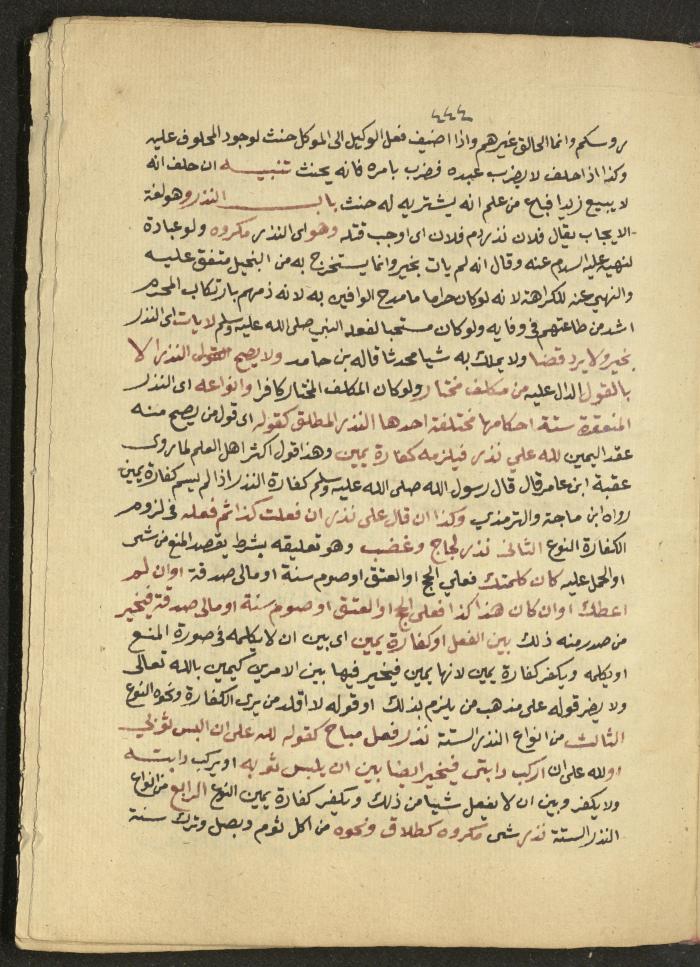 ٤٤٤
روسكم وانما الحالق غيرهم واذا اضيف فعل الوكيل الى الموكل حنث لوجود المحلوف عليه
وكذا اذا حلف لا يضرب عبده فضرب بامره فانه يحنث تنبيه ان حلف انه
لا يبيع زيدا فباع من علم انه يشتريه له حنث باب النذر وهو لغة
الايجاب يقال فلان نذر دم فلان اى اوجب قتله وهو اى النذر مكروه ولو عبادة
لنهيه عليه السلام عنه وقال انه لم يات بخير وانما يستخرج به من البخيل متفق عليه
والنهي عنه للكراهة لانه لو كان حراما ما مدح الوافين به لانه ذمهم بارتكاب المحرم
اشد من طاعتهم في وفايه ولو كان مستحبا لفعله النبي صلى الله عليه وسلم لا يات اى النذر
بخير ولا يرد قضا ولا يملك به شيا محدثا قاله بن حامد ولا يصح النذر الا
بالقول الدال عليه من مكلف مختار ولو كان المكلف المختار كافرا وانواعه اى النذر
المنعقدة ستة احكامها مختلفة احدها النذر المطلق كقوله اى قول من يصح منه
عقد اليمين لله علي نذر فيلزمه كفارة يمين وهذا قول اكثر اهل العلم لما روى
عقبة ابن عامر قال قال رسول الله صلى الله عليه وسلم كفارة النذر اذا لم يسم كفارة يمين
رواه ابن ماجة والترمذي وكذا ان قال على نذر ان فعلت كذا ثم فعله في لزوم
الكفارة النوع الثانى نذر لجاج وغضب وهو تعليقه بشرط يقصد المنع من شى
او الحمل عليه كان كلمتك فعلي الحج او العتق او صوم سنة او مالى صدقة او ان لم
اعطك او ان كان هذا كذا فعلى الحج او العتق او صوم سنة او مالى صدقة فيخير
من صدر منه ذلك بين الفعل او كفارة يمين اى بين ان لا يكلمه في صورة المنع
او يكلمه ويكفر كفارة يمين لانها يمين فيخير فيها بين الامرين كيمين بالله تعالى
ولا يضر قوله على مذهب من يلزم بذلك او قوله لا اقلد من يرى الكفارة ونحوه النوع
الثالث من انواع النذر الستة نذر فعل مباح كقوله لله على ان البس ثوبي
او لله على ان اركب دابتى فيخير ايضا بين ان يلبس ثوبه او يركب دابته
ولا يكفر وبين ان لا يفعل شيا من ذلك ويكفر كفارة يمين النوع الرابع من انواع
النذر الستة نذر شى مكروه كطلاق ونحوه من اكل ثوم وبصل وترك سنة